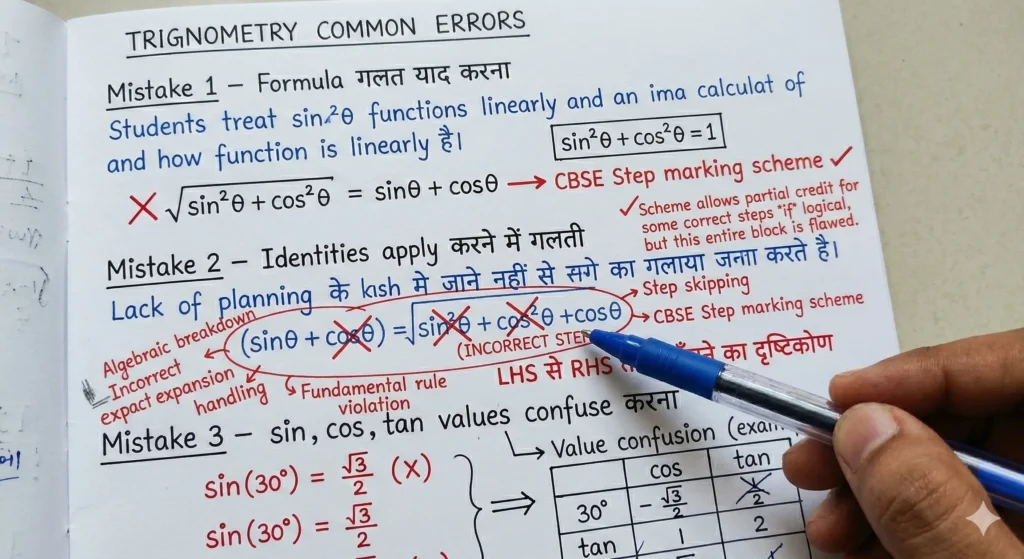 TRIGNOMETRY COMMON ERRORS
Mistake 1 – Formula गलत याद करना
Students treat sin²θ functions linearly and an ima calculat of
and how function is linearly है।
sin²θ + cos²θ = 1
√sin²θ + cos²θ = sinθ + cosθ → CBSE Step marking scheme ✓
✓ Scheme allows partial credit for
some correct steps "if" logical,
but this entire block is flawed.
Mistake 2 – Identities apply करने में गलती
Lack of planning के kısh मे जाने नहीं से सगे का गलाया जनाा करते है।
(sinθ + cosθ) = √sin²θ + cos²θ + cosθ
(INCORRECT STEP
Step skipping
CBSE Step marking scheme
Algebraic breakdown
Incorrect
expact expansion
handling
Fundamental rule
violation
LHS से RHS
का दृष्टिकोण
Mistake 3 – sin, cos, tan values confuse करना
sin(30°) = √3/2 (X)
sin(30°) = √3/2
Value confusion (exam
cos tan
30° -√3/2 1/2
tan 1 2